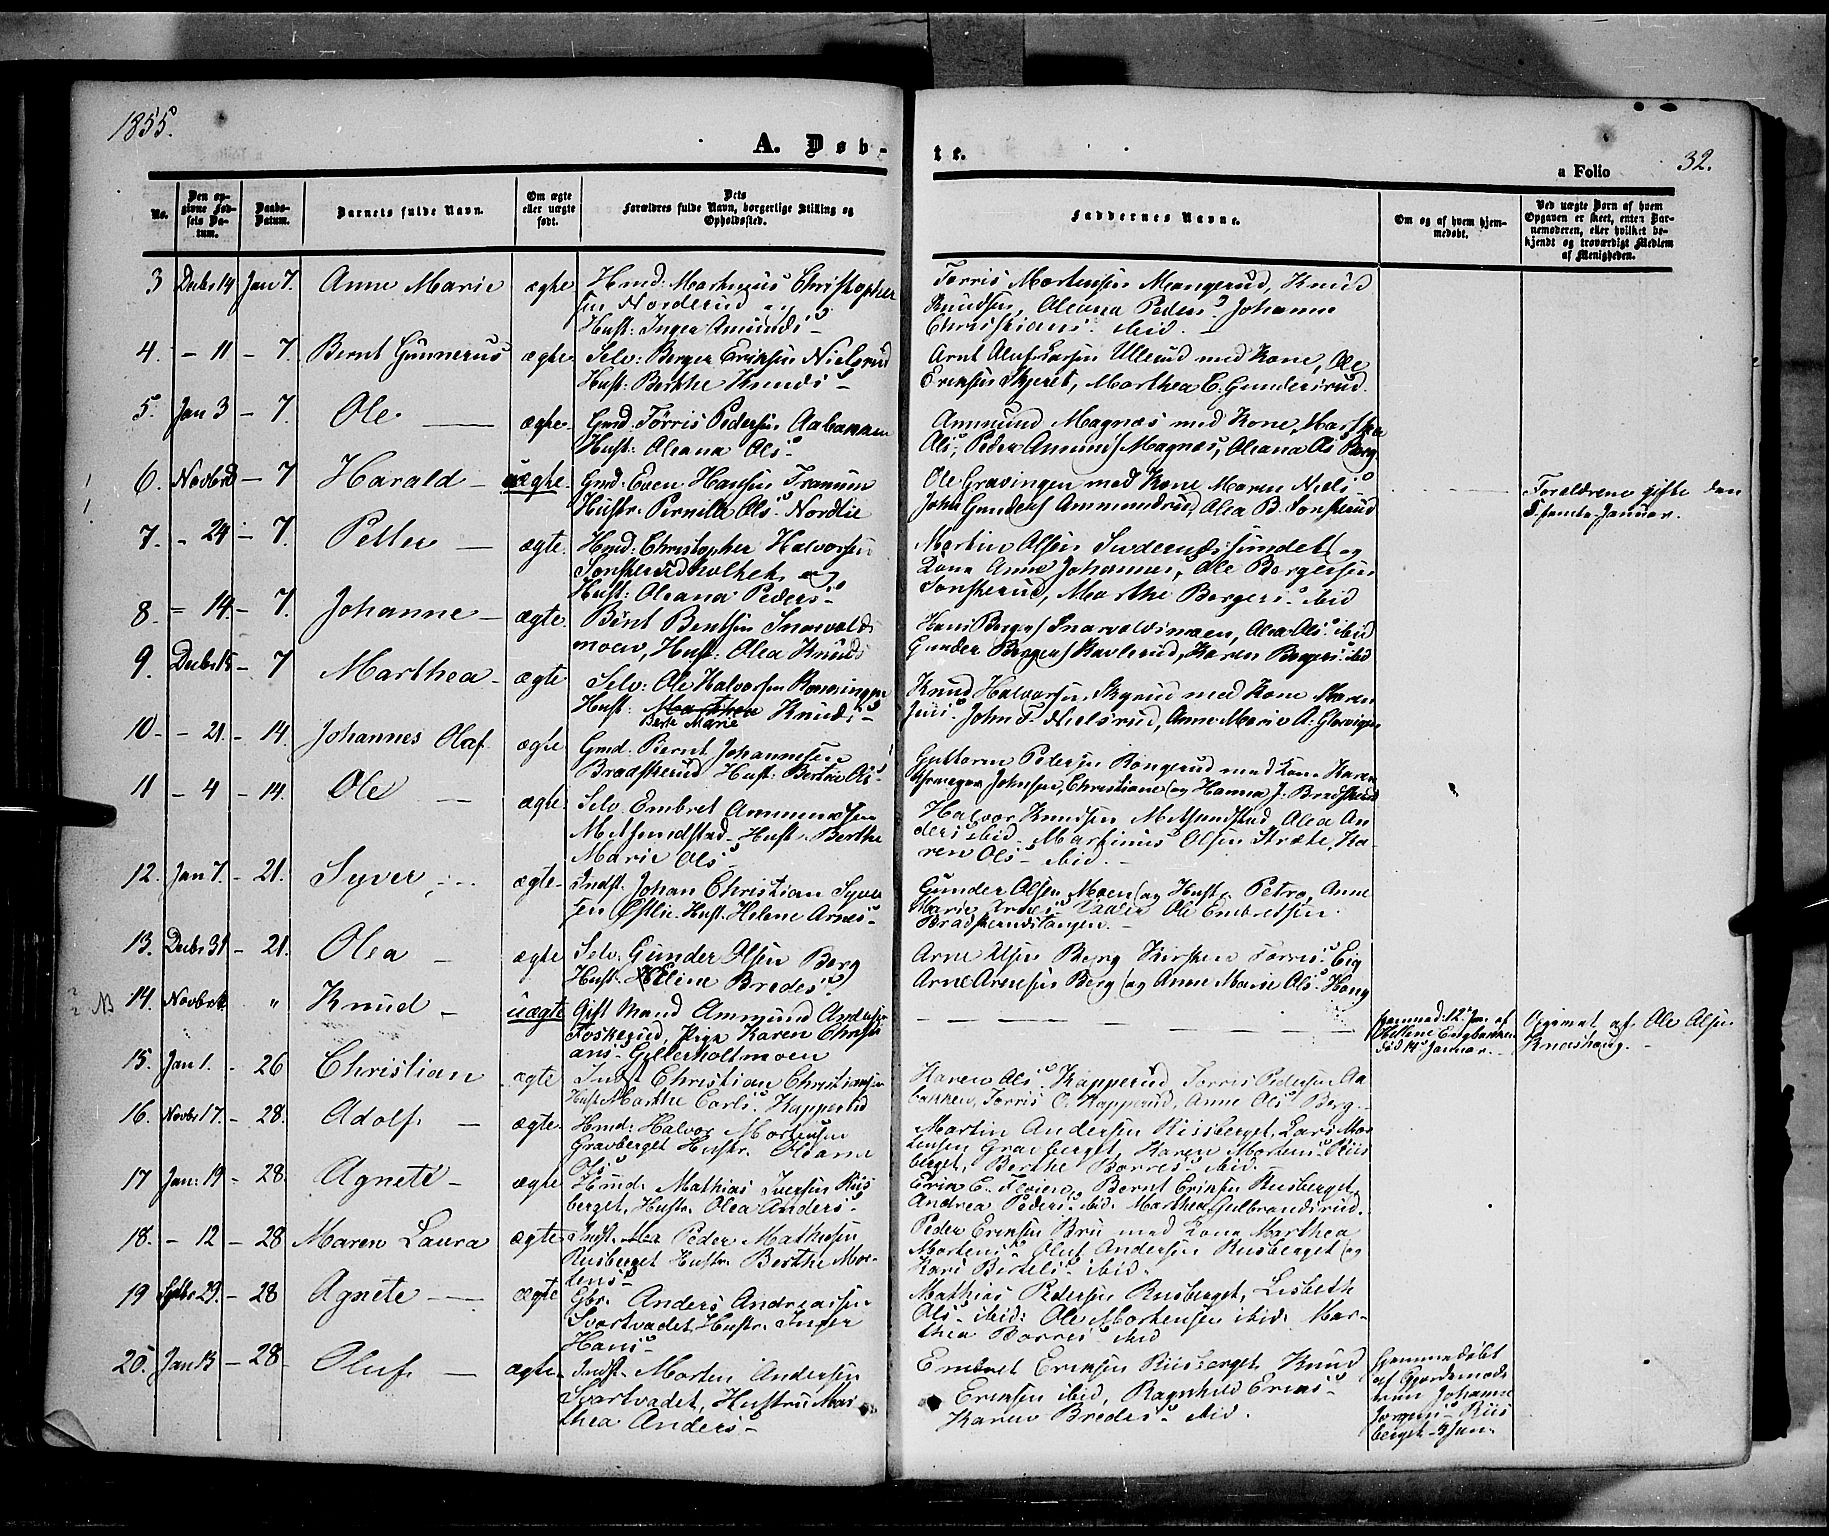 1855.
A. Døb-
te.
a Folio
32.
No.
Den opgivne Fødsels Datum.
Daabs-Datum.
Barnets fulde Navn.
Om ægte eller uægte født.
Dets Forældres fulde Navn, borgerlige Stilling og Opholdssted.
Faddernes Navne.
Om og af hvem hjemmedøbt.
Ved uægte Børn af hvem Opgaven er skeet, enten Barnemoderen, eller hvilket bekjendt og troværdigt Medlem af Menigheden.
3 Decbr 14 Jan 7. Anne Marie ægte Hmd: Marthinus Christopher
sen Norderud og
Hust: Inger Amunds-
Torris Mortensen Mangerud, Knud
Knudsen, Oleana Peders. Johanne
Christians. ibid. -
4. - 11 - 7. Bernt Gunnerus ægte Selv: Berger Eriksen Nielsrud
Hust: Berthe Knuds-
Arnt Olufs Larsen Ullerud med Kone, Ole
Eriksen Skjeret, Marthea E. Gundersrud.
5. Jan 3 - 7. Ole ægte Gmd: Torris Pedersen Aabakken
Hust: Oleana Ols-
Ammund Magnæs med Kone, Marthea
Ols, Peder Amunds Magnæs, Oleana Ols Berg
6. Novbr - 7 Harald - uægte. Gmd: Even Hansen
Hustr: Pernille Ols. Nordlie
Ole Gravingen med Kone Maren Niels
John Gunders Ammundrud, Olea B. Sonsterud
Forældrene gifte den
5 femte Januar.
7. - 24 - 7. Petter - ægte. Hmd: Christopher Halvorsen
Sonsterudholtet og
Hust: Oleana Peders-
Martin Olsen Sonderudsundet og
Kone Anne Johannes, Ole Bergersen
Sonsterud, Marthe Bergers. ibid
8. - 14 - 7. Johanne - ægte Bent Bentsen Snarvolds
moen, Hust: Olea Knuds
Hans Bergers Snarvoldsmoen, Olea Ols. ibid
Gunder Bergers Kavlerud, Karen Bergers. ibid
9. Decbr 15 - 7 Marthea - ægte Selv: Ole Halvorsen
Hust: Marthea Knuds-
Berte Marie
Knud Halvorsen med Kone Maren
Jens. John T. Nielsrud, Anne Marie A.
10. - 21. - 14. Johannes Olaf. ægte Gmd. Bernt Johannesen
Bradskerud Hust: Berthe Ols-
Guttorm Pedersen Rongerud med Kone Karen
Johnsen, Christiane og Hanna J. Bradskerud
11 - 4 - 14. Ole ægte. Selv Embret Ammundsen
Mitsundstad. Hust. Berthe
Marie Ols-
Halvor Knudsen Mitsundstad, Olea An
ders ibid. Martinus Olsen Stræte, Ka-
ren Ols- ibid. -
12. Jan 7. - 21. Syver ægte- Indst. Johan Christian Syver
sen Østlie. Hust. Helene Arnes-
Gunder Olsen Moen og Hustr. Petra, Anne
Marie Arnes Ole Embretsen
Bradskerudstangen. -
13. Decbr 31 - 21. Olea - ægte Selv: Gunder Olsen Berg
Hust: Eline Bredes
Arne Olsen Berg Kirsten Torris. Eig
Arne Arnesen Berg og Anne Marie Ols. Haug
NB 14. Novbr " Knud - uægte Gift Mand Ammund Anders
Foskerud, Pige Karen Christi
ans- Gullerholtmoen
hjemmed: 12 Jan af
Hellene Engbakken
død 14 Januar.
Opgivet af Ole Olsen
Knashaug.
15. Jan 1. - 26 Christian ægte Indst Christian Christiansen
Hust Marthe Carls. Kapperud
Karen Ols. Kapperud, Torris Pedersen Aa
bakken, Torris O. Kapperud, Anne Ols. Berg.
16. Novbr 17. - 28. Adolf. - ægte. Hmd: Halvor Mortensen
Gravberget Hustr. Oleane
Ols-
Martin Andersen Risberget, Lars Mor
tensen Gravberget, Karen Mortens. Riis
berget, Berthe Borres- ibid.
17 Jan: 19 - 28. Agnete - ægte Hmd: Mathias Iversen Riis
berget, Hustr. Olea Anders-
Erik E. Bernt Eriksen Risberget,
Andrea Peders. ibid. Marthea Gulbrandsrud.
18. - 12 - 28 Maren Laura ægte Indst: Peder Mathisen
Risberget Hustr. Berthe Mor-
tens-
Peder Eriksen Bru med Kone Marthea
Mortens- Oluf Andersen Risberget og
Kari Bertels- ibid.
19 Septbr 29. - 28 Agnete ægte Gbr. Anders Andreassen
Svartvadet, Hustr. Inger
Hans-
Mathias Pedersen Risberget, Lisbeth
Ols- ibid: Ole Mortensen ibid: Mar-
thea Borres- ibid
20. Jan 13 - 28. Oluf. - ægte. Indst- Morten Andersen
Svartvadet, Hustru Mar
thea Anders-
Embret Eriksen Risberget, Knud
Eriksen ibid, Ragnhild Eriks-
Karen Bredes- ibid.
hjemmedøbt
af Gjordemode
ren Johanne
Jorgens- Riis
berget